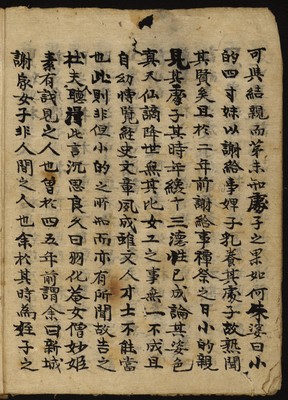 可與結親而第未知處子之果如何朱婆曰小
的四寸妹以謝給事婢子乳養其處子故熟聞
其賢矣且於二年前謝給事禫祭之日小的親
見其處子其時年纔十三德性已成論其姿色
真天仙謫降世無其比女工之事無一不成且
自幼博覽經史文章夙成雖文人才士不能當
也此則非但小的之所知而亦有所聞故告之
杜夫人聽此言沉思良久曰羽化菴女僧妙姬
素有識見之人也曾於四五年前謂余曰新城
謝家女子非人間之人也余於其時為姪子之